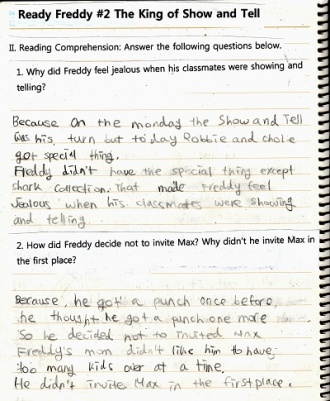 Ready Freddy #2 The King of Show and Tell
II. Reading Comprehension: Answer the following questions below.
1. Why did Freddy feel jealous when his classmates were showing and
telling?
Because on the monday the Show and Tell
was his, turn but today Robbie and chole
got special thing.
Freddy didn't have the special thing except
shark collection. That made Freddy feel
Jealous when his classmates were showing
and telling
2. How did Freddy decide not to invite Max? Why didn't he invite Max in
the first place?
Because, he got a punch once before,
he thought he got a punch one more
So he decided not to invited Max
Freddy's mom didn't like him to have
too many kids over at a time,
He didn't invite Max in the first place.